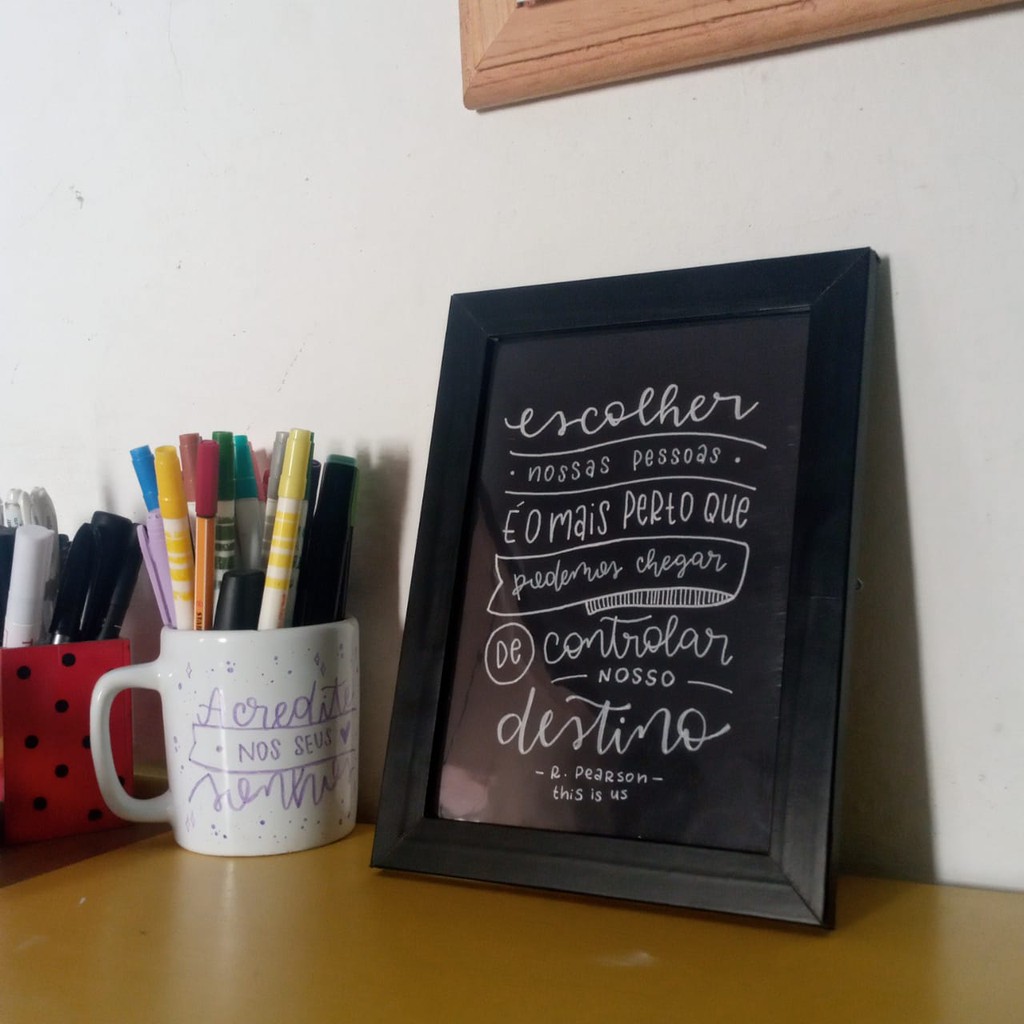 escolher
• nossas pessoas •
É o mais perto que
podemos chegar
de controlar
nosso
destino
- R. Pearson -
this is us
Acredite
nos seus
sonhos